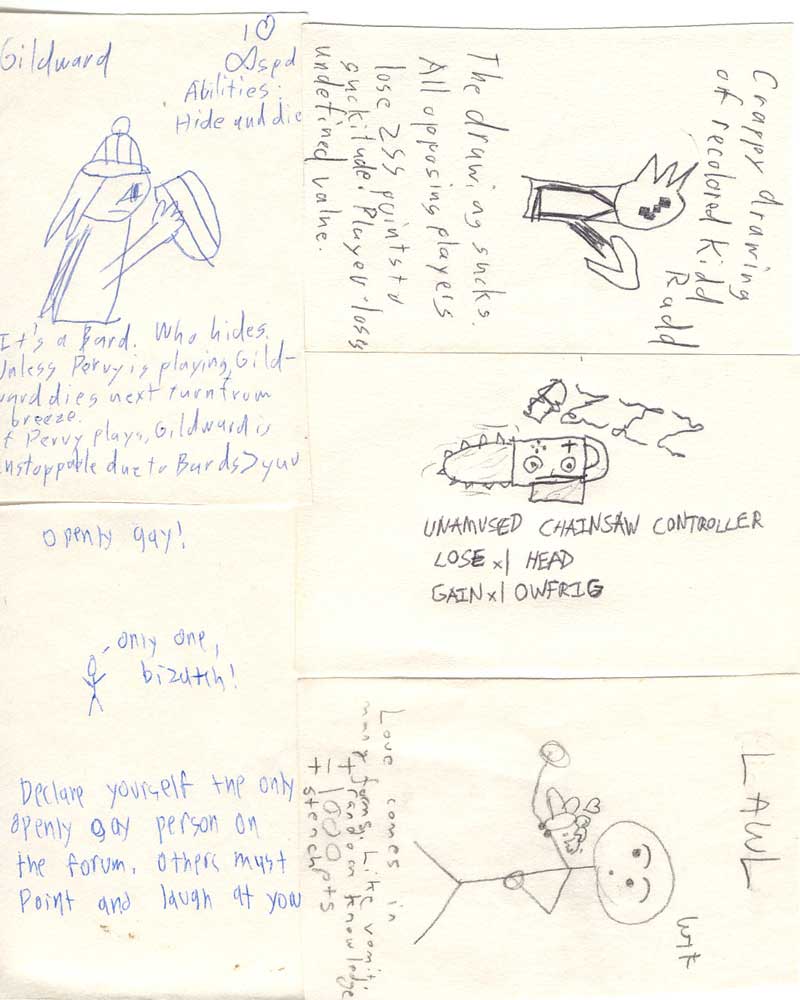 Gildward
1♡
∞spd
Abilities:
Hide and die
It's a Bard. Who hides.
Unless Pervy is playing, Gild-
ward dies next turn from
breeze.
If Pervy plays, Gildward is
unstoppable due to Bards>you
Crappy drawing
of recolored Kidd
Radd
The drawing sucks.
All opposing players
lose 255 points to
suckitude. Player loses
undefined value.
UNAMUSED CHAINSAW CONTROLLER
LOSE x1 HEAD
GAIN x1 OWFRIG
Openly gay!
only one,
bizatch!
Declare yourself the only
openly gay person on
the forum. Others must
Point and laugh at you
LAWL
wtf
Love comes in
many forms. Like vomit.
+ random knowledge
± 1000
+ stench pts